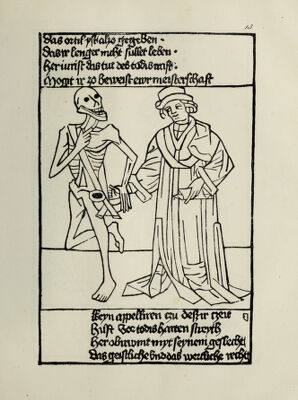 das ortil yst also gegeben ·
Das ir lenger nicht sullet leben ·
Her iurist das tut des todis craft :
Moget ir zo beweist ewr meisterschaft
Keyn appelliren czu desir czeit
Hilft vor todis harten streyth
Her obirwint myt seynem geslecht
Das geistliche vnd das wertliche recht